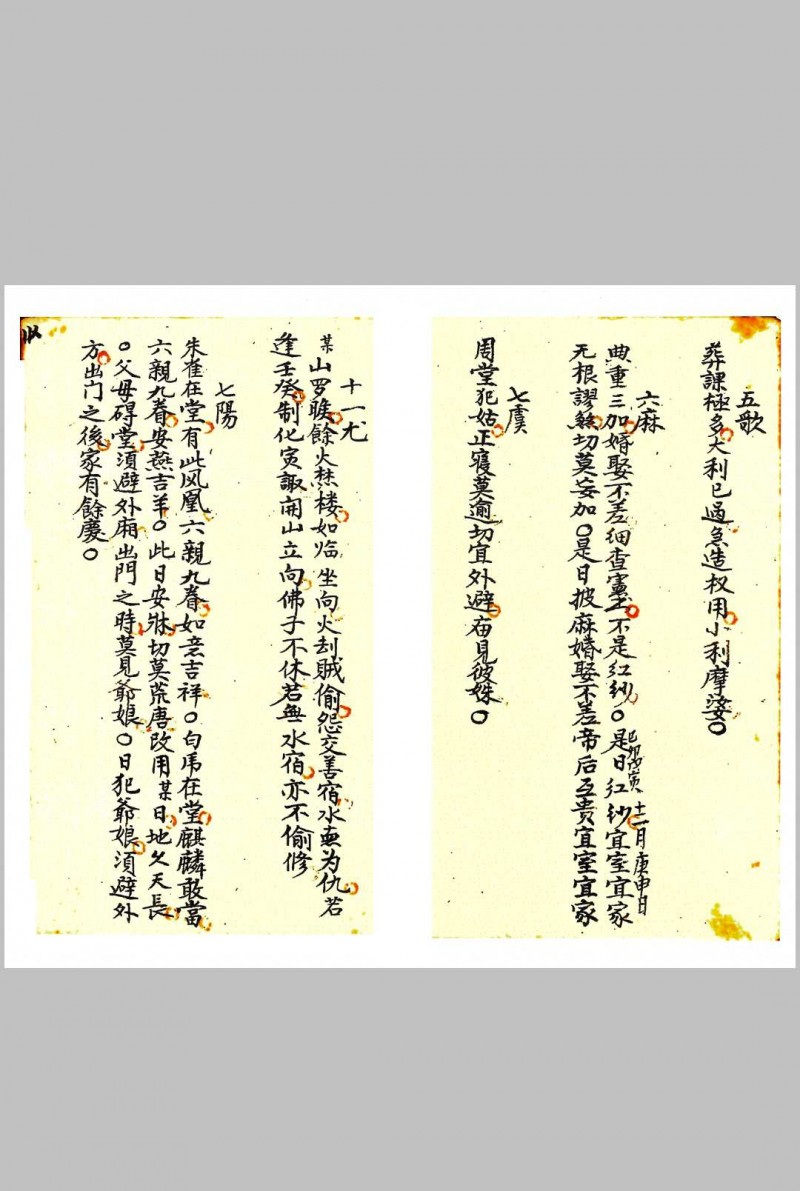 五歌
葬課極多大利已過急造权用小利摩婆○
六麻
典重三加婚娶不差细查憲书不是红纱○是日红纱宜室宜家
己卯丙寅 十二月庚申日
无根謬丝切莫妄加○是日披麻婚娶不差帝后互贵宜室宜家
七虞
周堂犯姑正寝莫逾切宜外避庙見彼姝○
十一尤
某山罗睺餘火焚楼如临坐向火刦贼偷怨交善宿水無为仇若
逢壬癸制化寅諏開山立向佛子不休若無水宿亦不偷修
七陽
朱雀在堂有此凤凰六親九眷如意吉祥○白虎在堂麒麟敢當
六親九眷安燕吉羊○此日安牀切莫荒唐改用某日地久天長
○父母碍堂須避外厢出門之時莫見爺娘○日犯爺娘須避外
方出门之後家有餘慶○